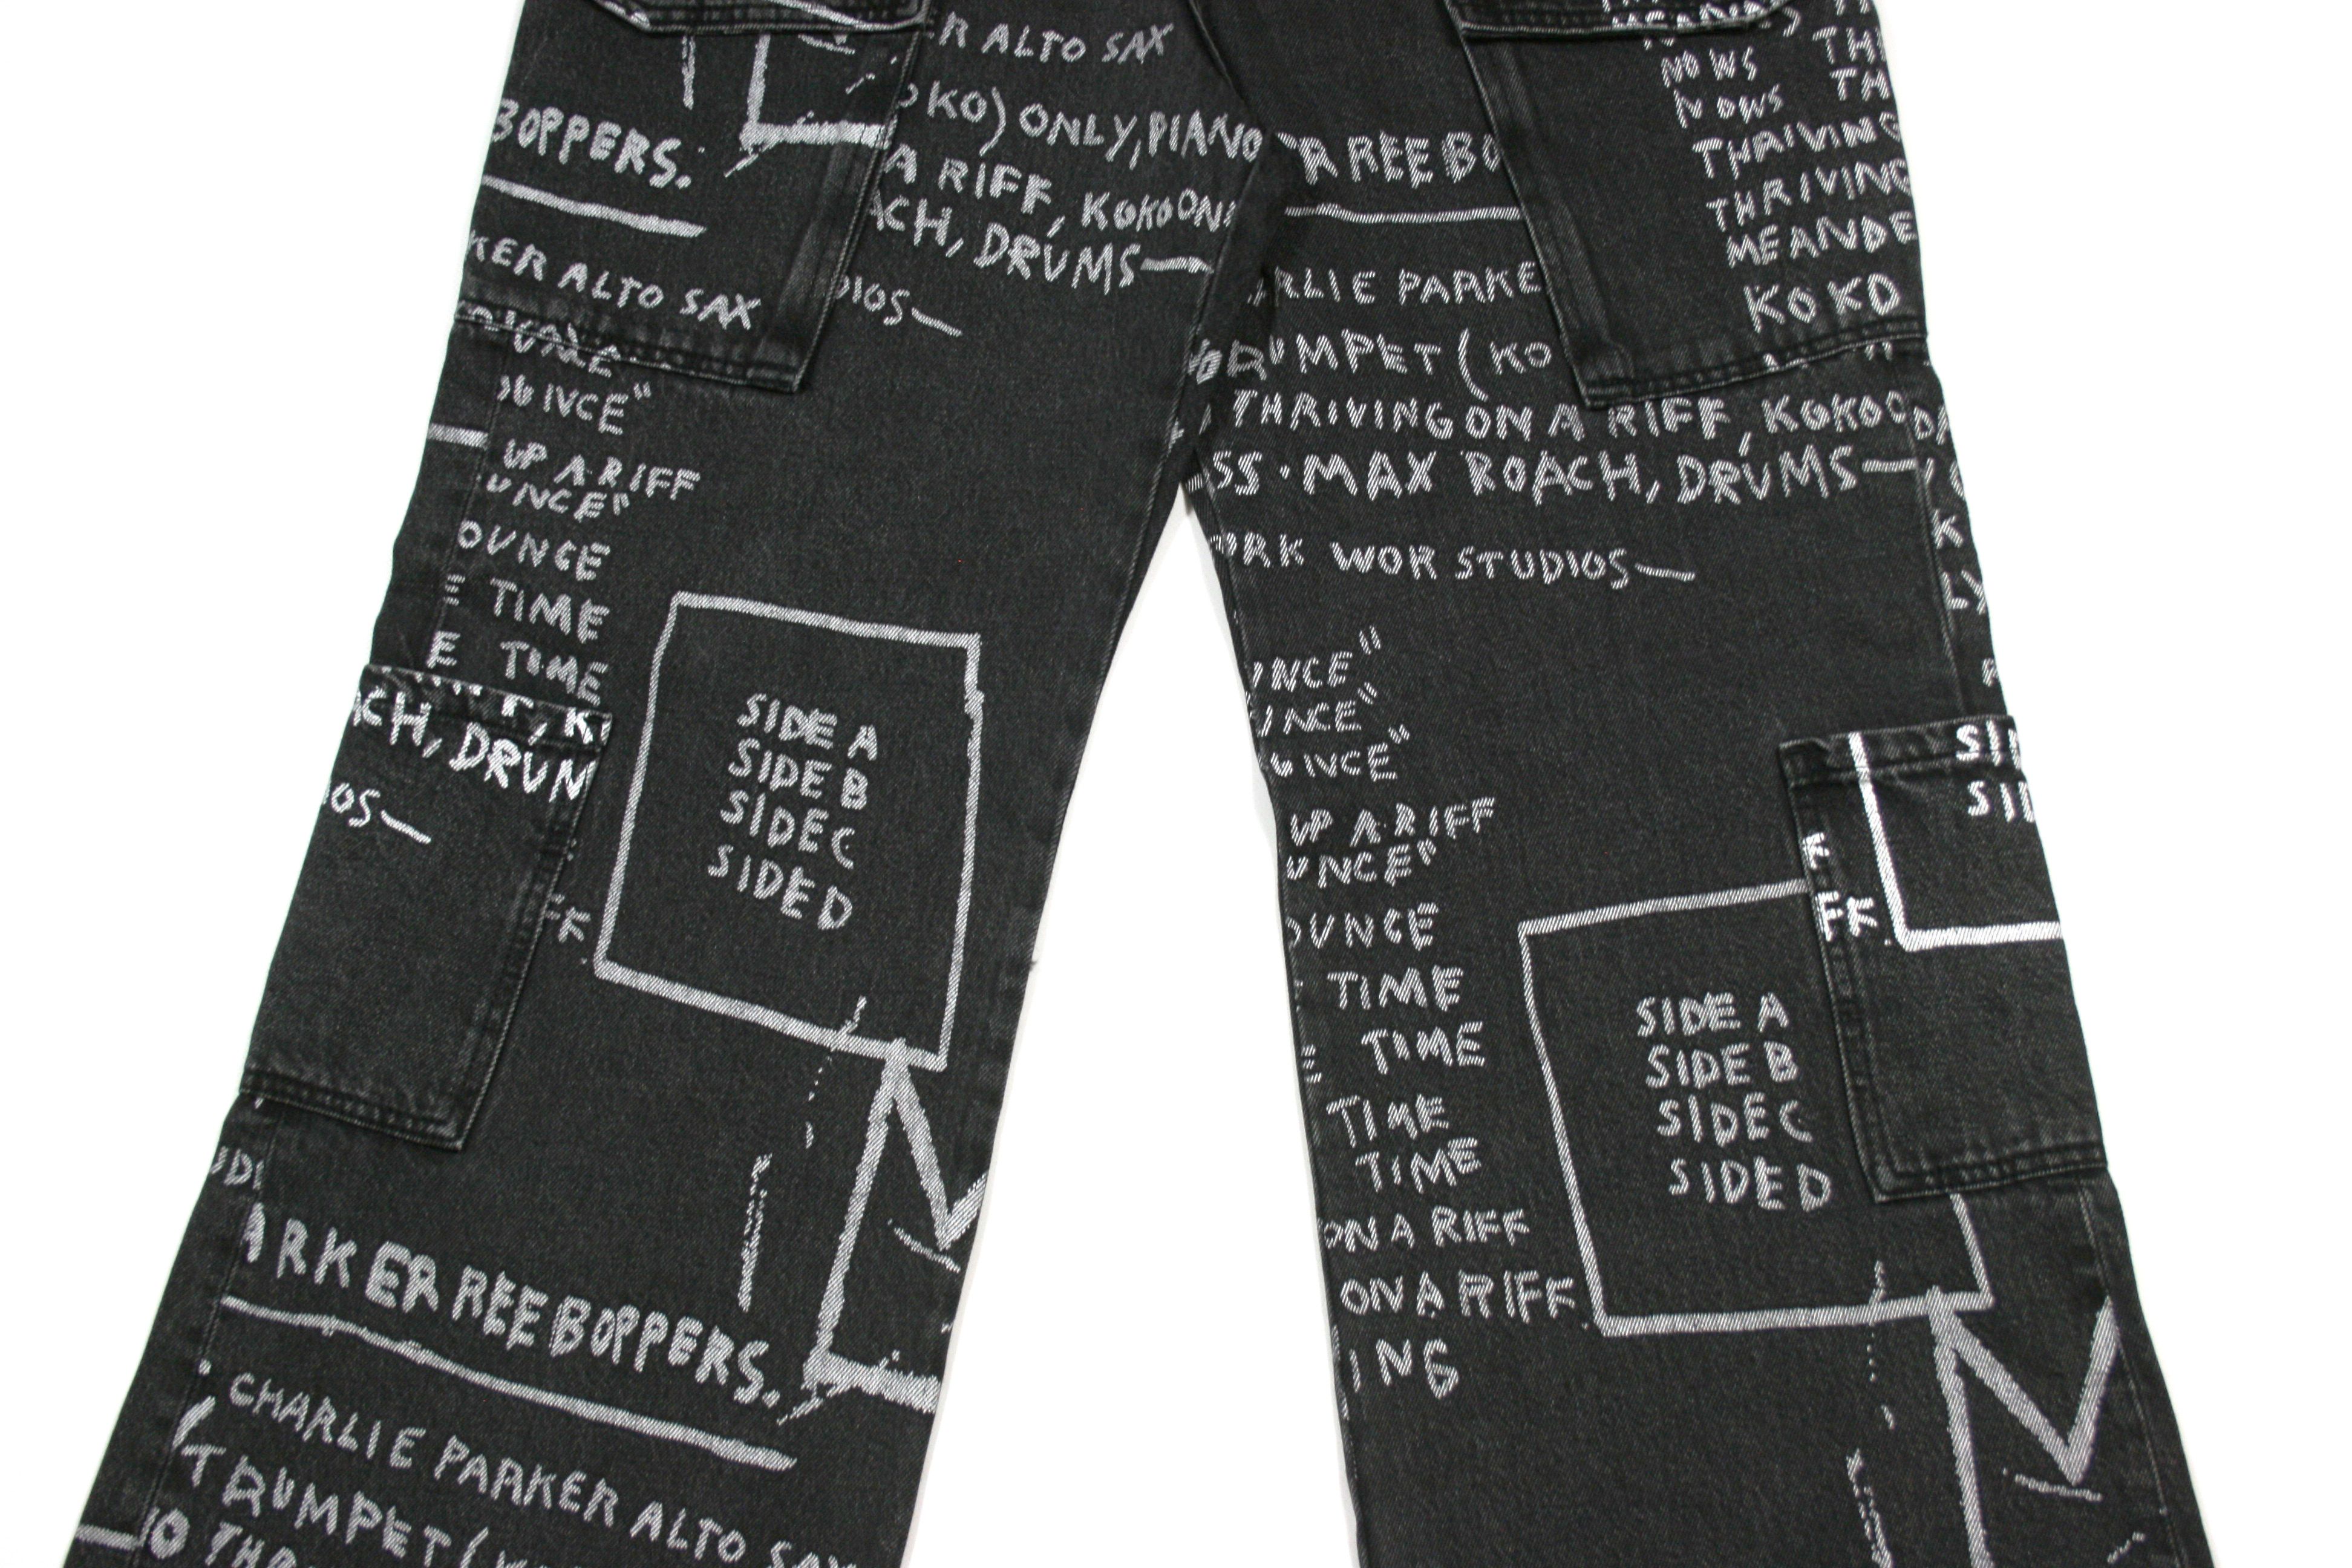 R ALTO SAX
KO) ONLY, PIANO
A RIFF, KOKO ON
ACH, DRUMS—
DIOS—
BOPPERS.
KER ALTO SAX
UP A RIFF
UNCE"
OUNCE
E TIME
E TIME
ACH, DRUM
IOS—
FF
SIDE A
SIDE B
SIDE C
SIDE D
ARKER REEBOPPERS.
CHARLIE PARKER ALTO SAX
TRUMPET (
R REEBO
RLIE PARKE
RUMPET (KO
THRIVING ON A RIFF, KOKO O
SS · MAX ROACH, DRUMS—
ORK WOR STUDIOS—
NOWS TH
NOWS TH
THRIVING
THRIVING
MEANDE
KOKO
UNCE"
UNCE"
UNCE"
UP A RIFF
UNCE"
OUNCE
TIME
E TIME
TIME
TIME
ON A RIFF
ON A RIFF
ING
SIDE A
SIDE B
SIDE C
SIDE D
SID
SID
FF